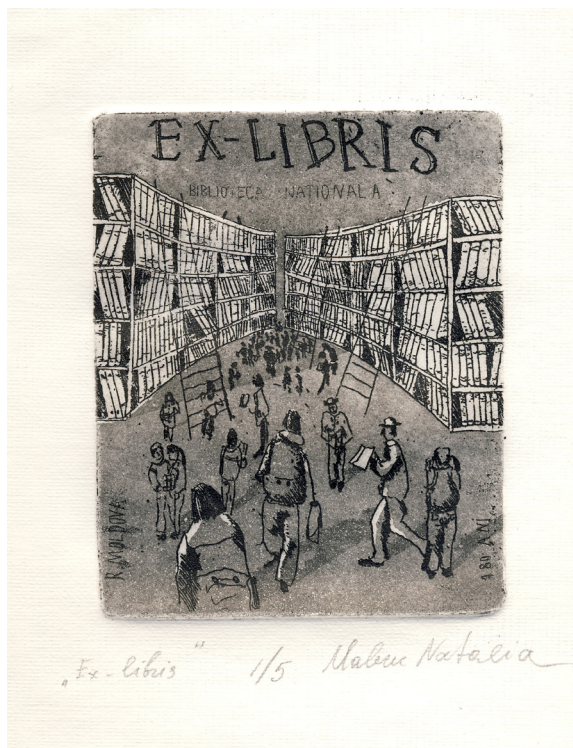 EX-LIBRIS
BIBLIOTECA NATIONALA
R. MOLDOVA
180 ANI
„Ex-libris" 1/5 Natalia